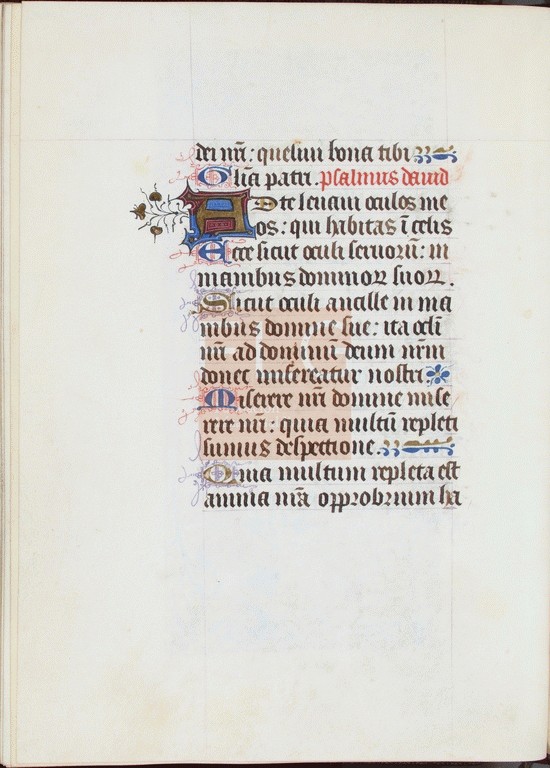 dei nr̄i: quesiui bona tibi
Gl'ia patri. psalmus dauid
Ad te leuaui oculos me
os: qui habitas ī celis
Ecce sicut oculi seruorū: in
manibus dominoꝝ suoꝝ.
Sicut oculi ancille in ma
nibus domine sue: ita oc̄li
nr̄i ad dominū deum nr̄m
donec misereatur nostri
Miserere nr̄i domine mise
rere nr̄i: quia multū repleti
sumus despectione.
Quia multum repleta est
anima nr̄a opprobrium ha